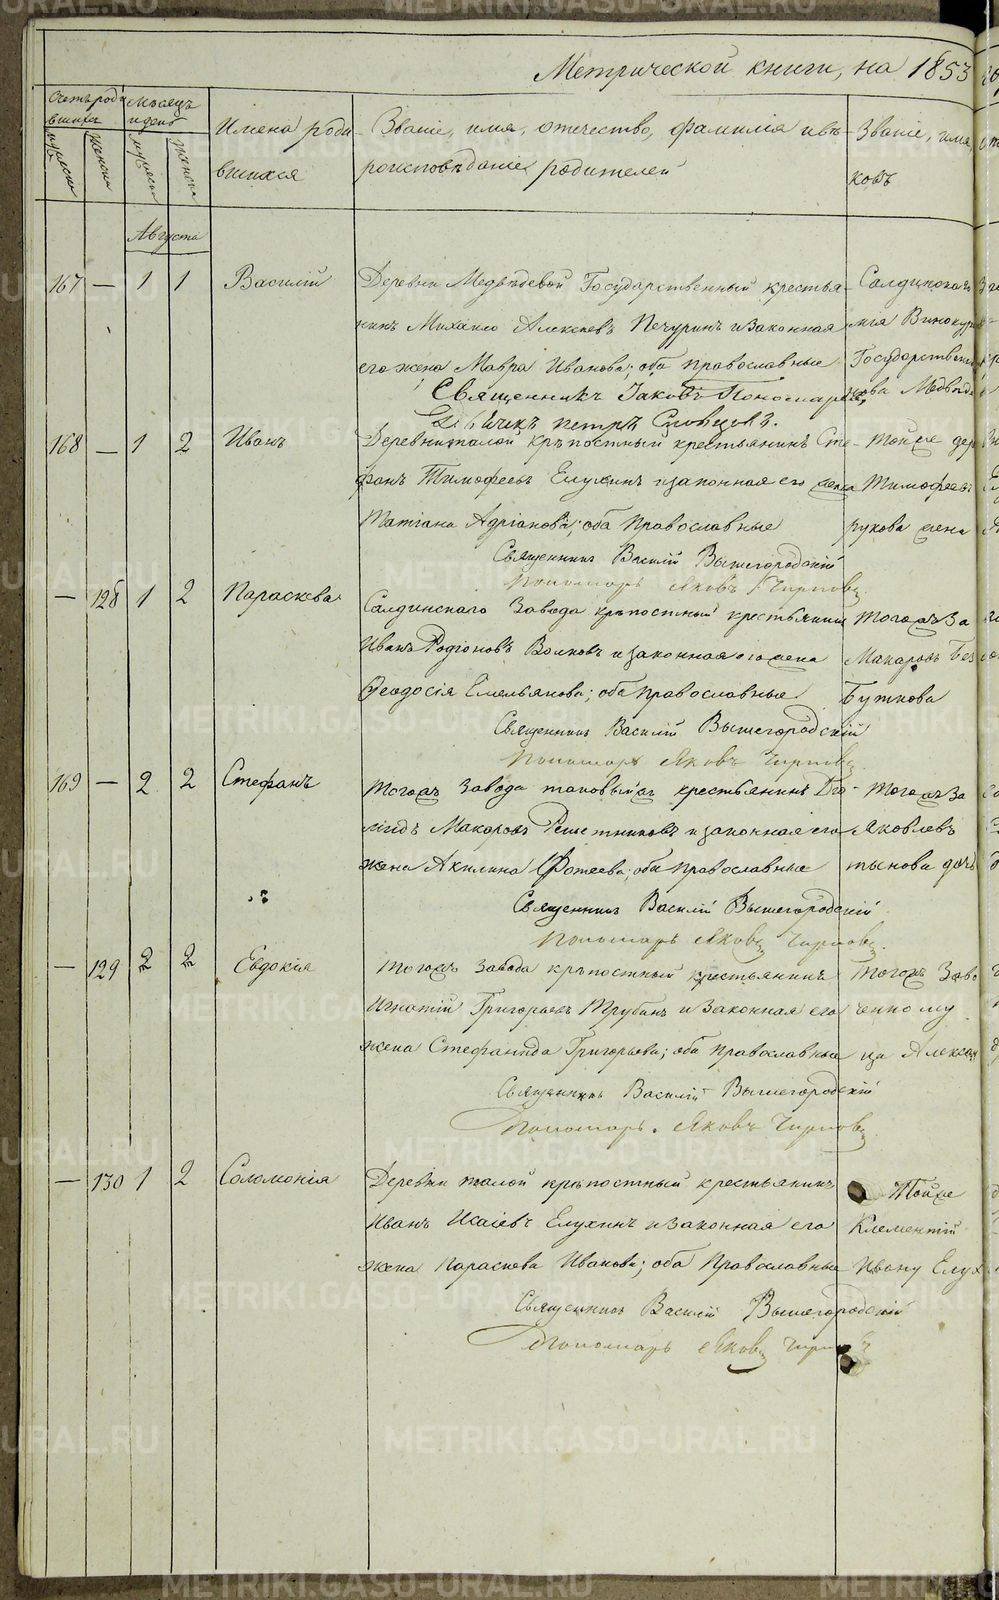 Метрической книги, на 1853
Счетъ роди
вшихся
Мѣсяцъ
и день
Имена роди
вшихся
Званіе, имя, отечество, фамилія и вѣ-
роисповѣданіе родителей
Званіе, имя,
ковъ
мужеска
женска
мужеска
женска
Августа
167 — 1 1 Василій
Деревни Медвѣдевой Государственный крестья-
нинъ Михаило Алексѣевъ Печуринъ и законная
его жена Мавра Иванова; оба православные
Священникъ Іаковъ Пономаревъ
Дьячекъ Петръ Словцовъ.
Государственн
168 — 1 2 Иванъ
Деревни малой крѣпостный крестьянинъ Сте-
фанъ Тимофеевъ Елухинъ и законная его жена
Татіана Адріанова; оба Православные
Священникъ Василій Вышегородскій
Пономарь Яковъ
Той же дер
Тимофеевъ
жена
— 128 1 2 Параскева
Салдинскаго Завода крѣпостный крестьянинъ
Иванъ Родіоновъ Волковъ и законная его жена
Феодосія Емельянова; оба Православные
Священникъ Василій Вышегородскій
Пономарь Яковъ
Того жъ За
Макаровъ Без
Буткова
169 — 2 2 Стефанъ
Того жъ Завода таковый жъ крестьянинъ Dio-
мидъ Макаровъ Решетниковъ и законная его
жена Акилина Фотеева; оба Православные
Священникъ Василій Вышегородскій
Пономарь Яковъ
Того жъ За
Яковлевъ
тынова дочь
— 129 2 2 Евдокія
Того жъ Завода крѣпостный крестьянинъ
Игнатій Григорьевъ Трубинъ и законная его
жена Стефанида Григорьева; оба Православные
Священникъ Василій Вышегородскій
Пономарь Яковъ
Того жъ Заво
енному
ца Алексан
— 130 1 2 Соломонія
Деревни малой крѣпостный крестьянинъ
Иванъ Исаіевъ Елухинъ и законная его
жена Параскева Иванова; оба Православные
Священникъ Василій Вышегородскій
Пономарь Яковъ
Той же
Клементій
Ивану Елух
METRIKI.GASO-URAL.RU